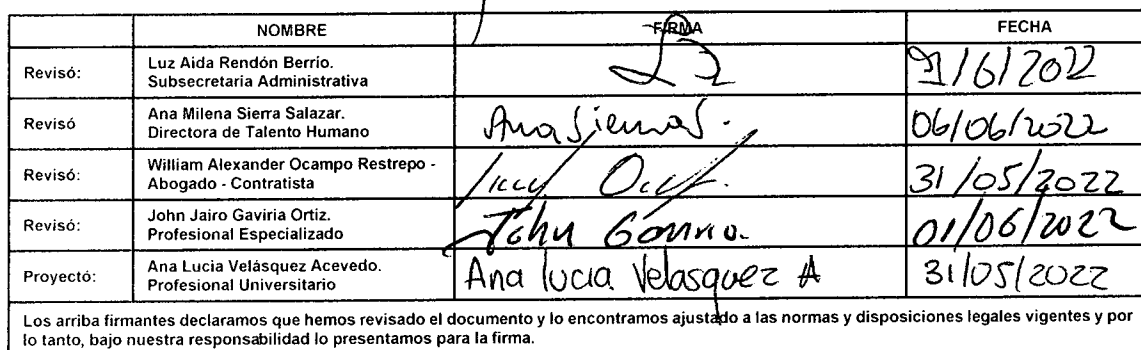 NOMBRE FIRMA FECHA
Revisó: Luz Aida Rendón Berrío.
Subsecretaria Administrativa
/6/2022
Revisó Ana Milena Sierra Salazar.
Directora de Talento Humano
Ana Sierra S. 06/06/2022
Revisó: William Alexander Ocampo Restrepo -
Abogado - Contratista
31/05/2022
Revisó: John Jairo Gaviria Ortiz.
Profesional Especializado
John Gaviria. 01/06/2022
Proyectó: Ana Lucia Velásquez Acevedo.
Profesional Universitario
Ana lucia Velasquez A 31/05/2022
Los arriba firmantes declaramos que hemos revisado el documento y lo encontramos ajustado a las normas y disposiciones legales vigentes y por
lo tanto, bajo nuestra responsabilidad lo presentamos para la firma.